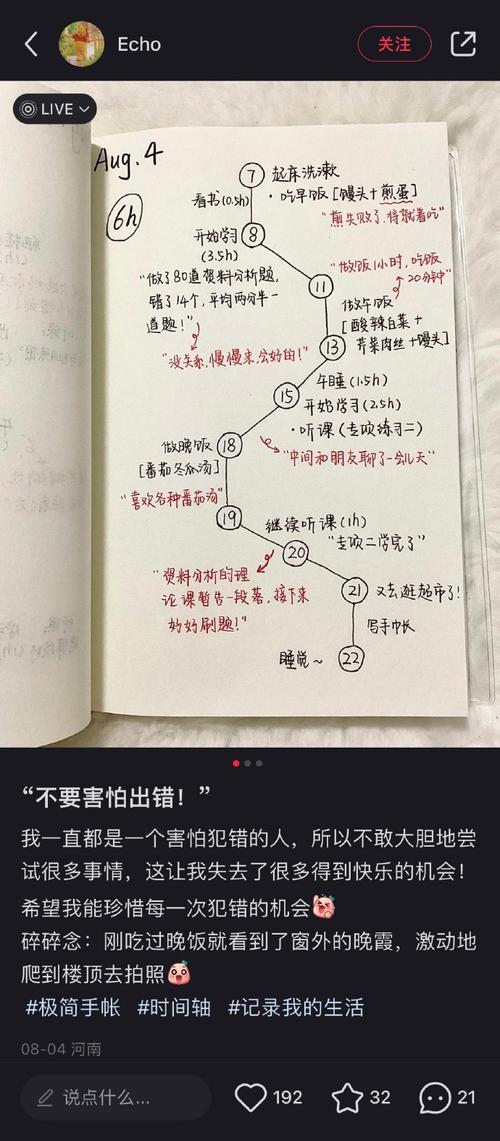 Echo
关注
LIVE
Aug.4
6h
7 起床洗漱
·吃早饭[馒头+煎蛋]
"煎失败了,将就着吃"
看书(0.5h)
8
开始学习
(3.5h)
"做了80道资料分析题,
错了14个,平均两分半一
道题!"
"没关系,慢慢来,会好的!"
11
"做饭1小时,吃饭
20分钟"
做午饭
[酸辣白菜+
芹菜肉丝+馒头]
13
午睡(1.5h)
15
开始学习(2.5h)
·听课(专项练习二)
"中间和朋友聊了一会儿天"
18
做晚饭
[番茄冬瓜汤]
"喜欢各种番茄汤"
19
继续听课(1h)
"专项二学完了"
20
"资料分析的理
论课暂告一段落,接下来
好好刷题!"
21 又去逛超市了!
写手帐
睡觉~ 22
“不要害怕出错!”
我一直都是一个害怕犯错的人,所以不敢大胆地尝
试很多事情,这让我失去了很多得到快乐的机会!
希望我能珍惜每一次犯错的机会
碎碎念:刚吃过晚饭就看到了窗外的晚霞,激动地
爬到楼顶去拍照
#极简手帐 #时间轴 #记录我的生活
08-04 河南
说点什么... 192 32 21